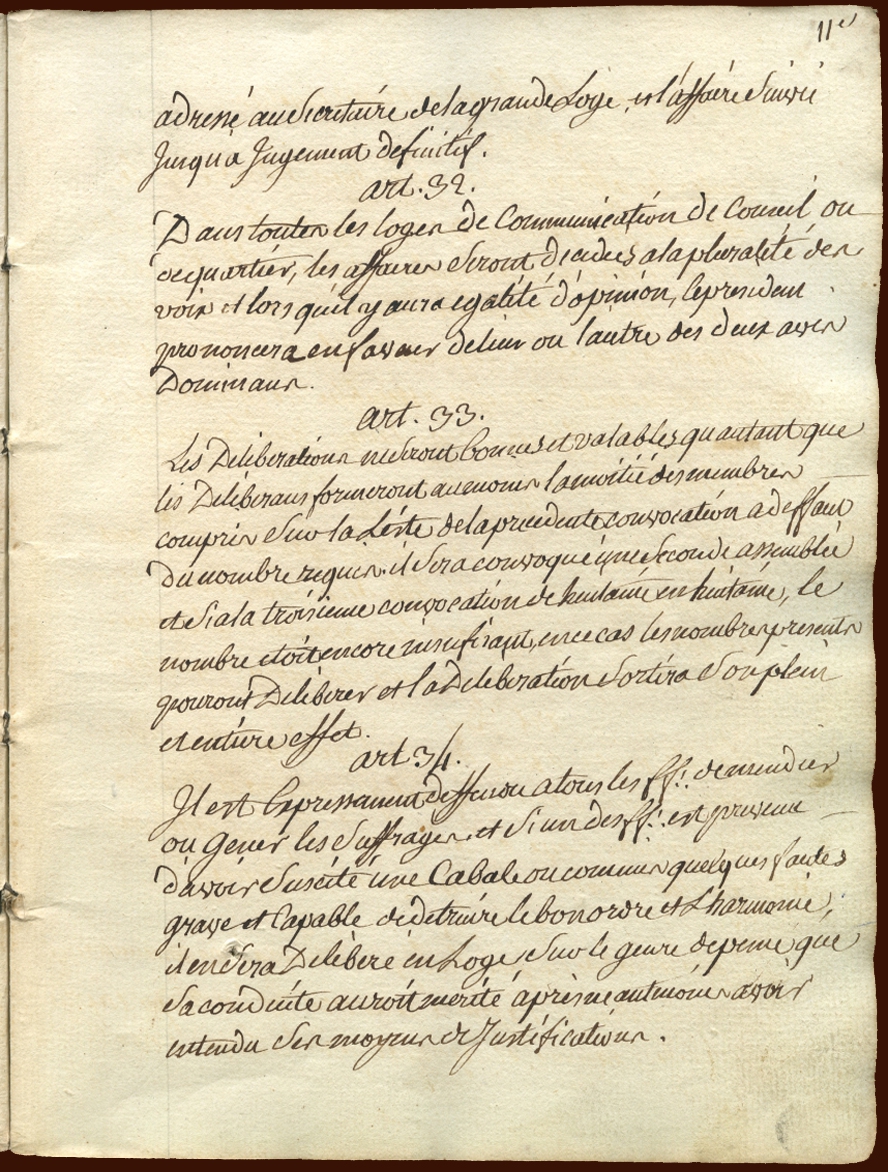 11e
adressé au Secrétaire de la grande Loge, et l'affaire Suivie
Jusqu'a Jugement définitif.
art. 32.
Dans toutes les loges de Communication de Conseil ou
de quartier, les affaires Seront décidées a la pluralité des
voix et lors qu'il y aura égalité d'opinion, le president
prononcera en faveur de l'un ou l'autre des deux avis
Dominans.
art. 33.
Les Déliberations ne Seront bonnes et valables, qu'autant que
les Déliberans formeront au moins la moitié des membres
compris Sur la Liste de la précédente convocation a deffaut
Du nombre requis il Sera convoqué une Seconde assemblée
et Si a la troisieme convocation de huitaine en huitaine, le
nombre etoit encore insufisant, en ce cas les nombres presents
pouront Déliberer et la Délibération Sortira Son plein
et entiere effet.
art 34.
Il est Expressement deffendu a tous les ff∴ de mendier
ou Gener les Suffrages. et Si un des ff∴ est prevenu
d'avoir Suscité une Cabale ou commis quelques fautes
grave et Capable de détruire le bon ordre et L'harmonie,
il en Sera Déliberé en Loge, Sur le genre de peine que
Sa conduite auroit mérité après neantmoins avoir
entendu Ses moyens de Justifications.